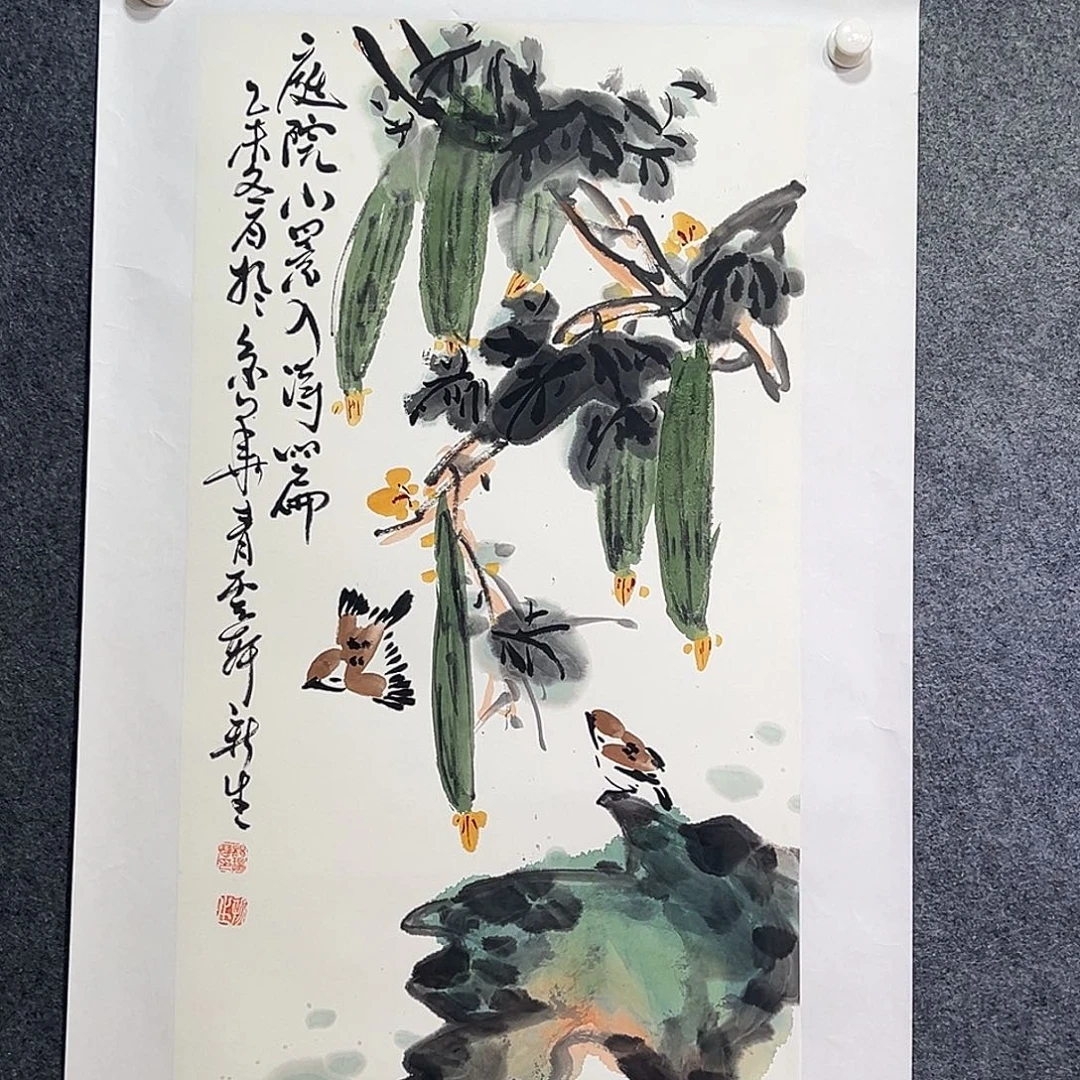 庭院小景入诗篇
乙未冬月於京華青雲軒新生